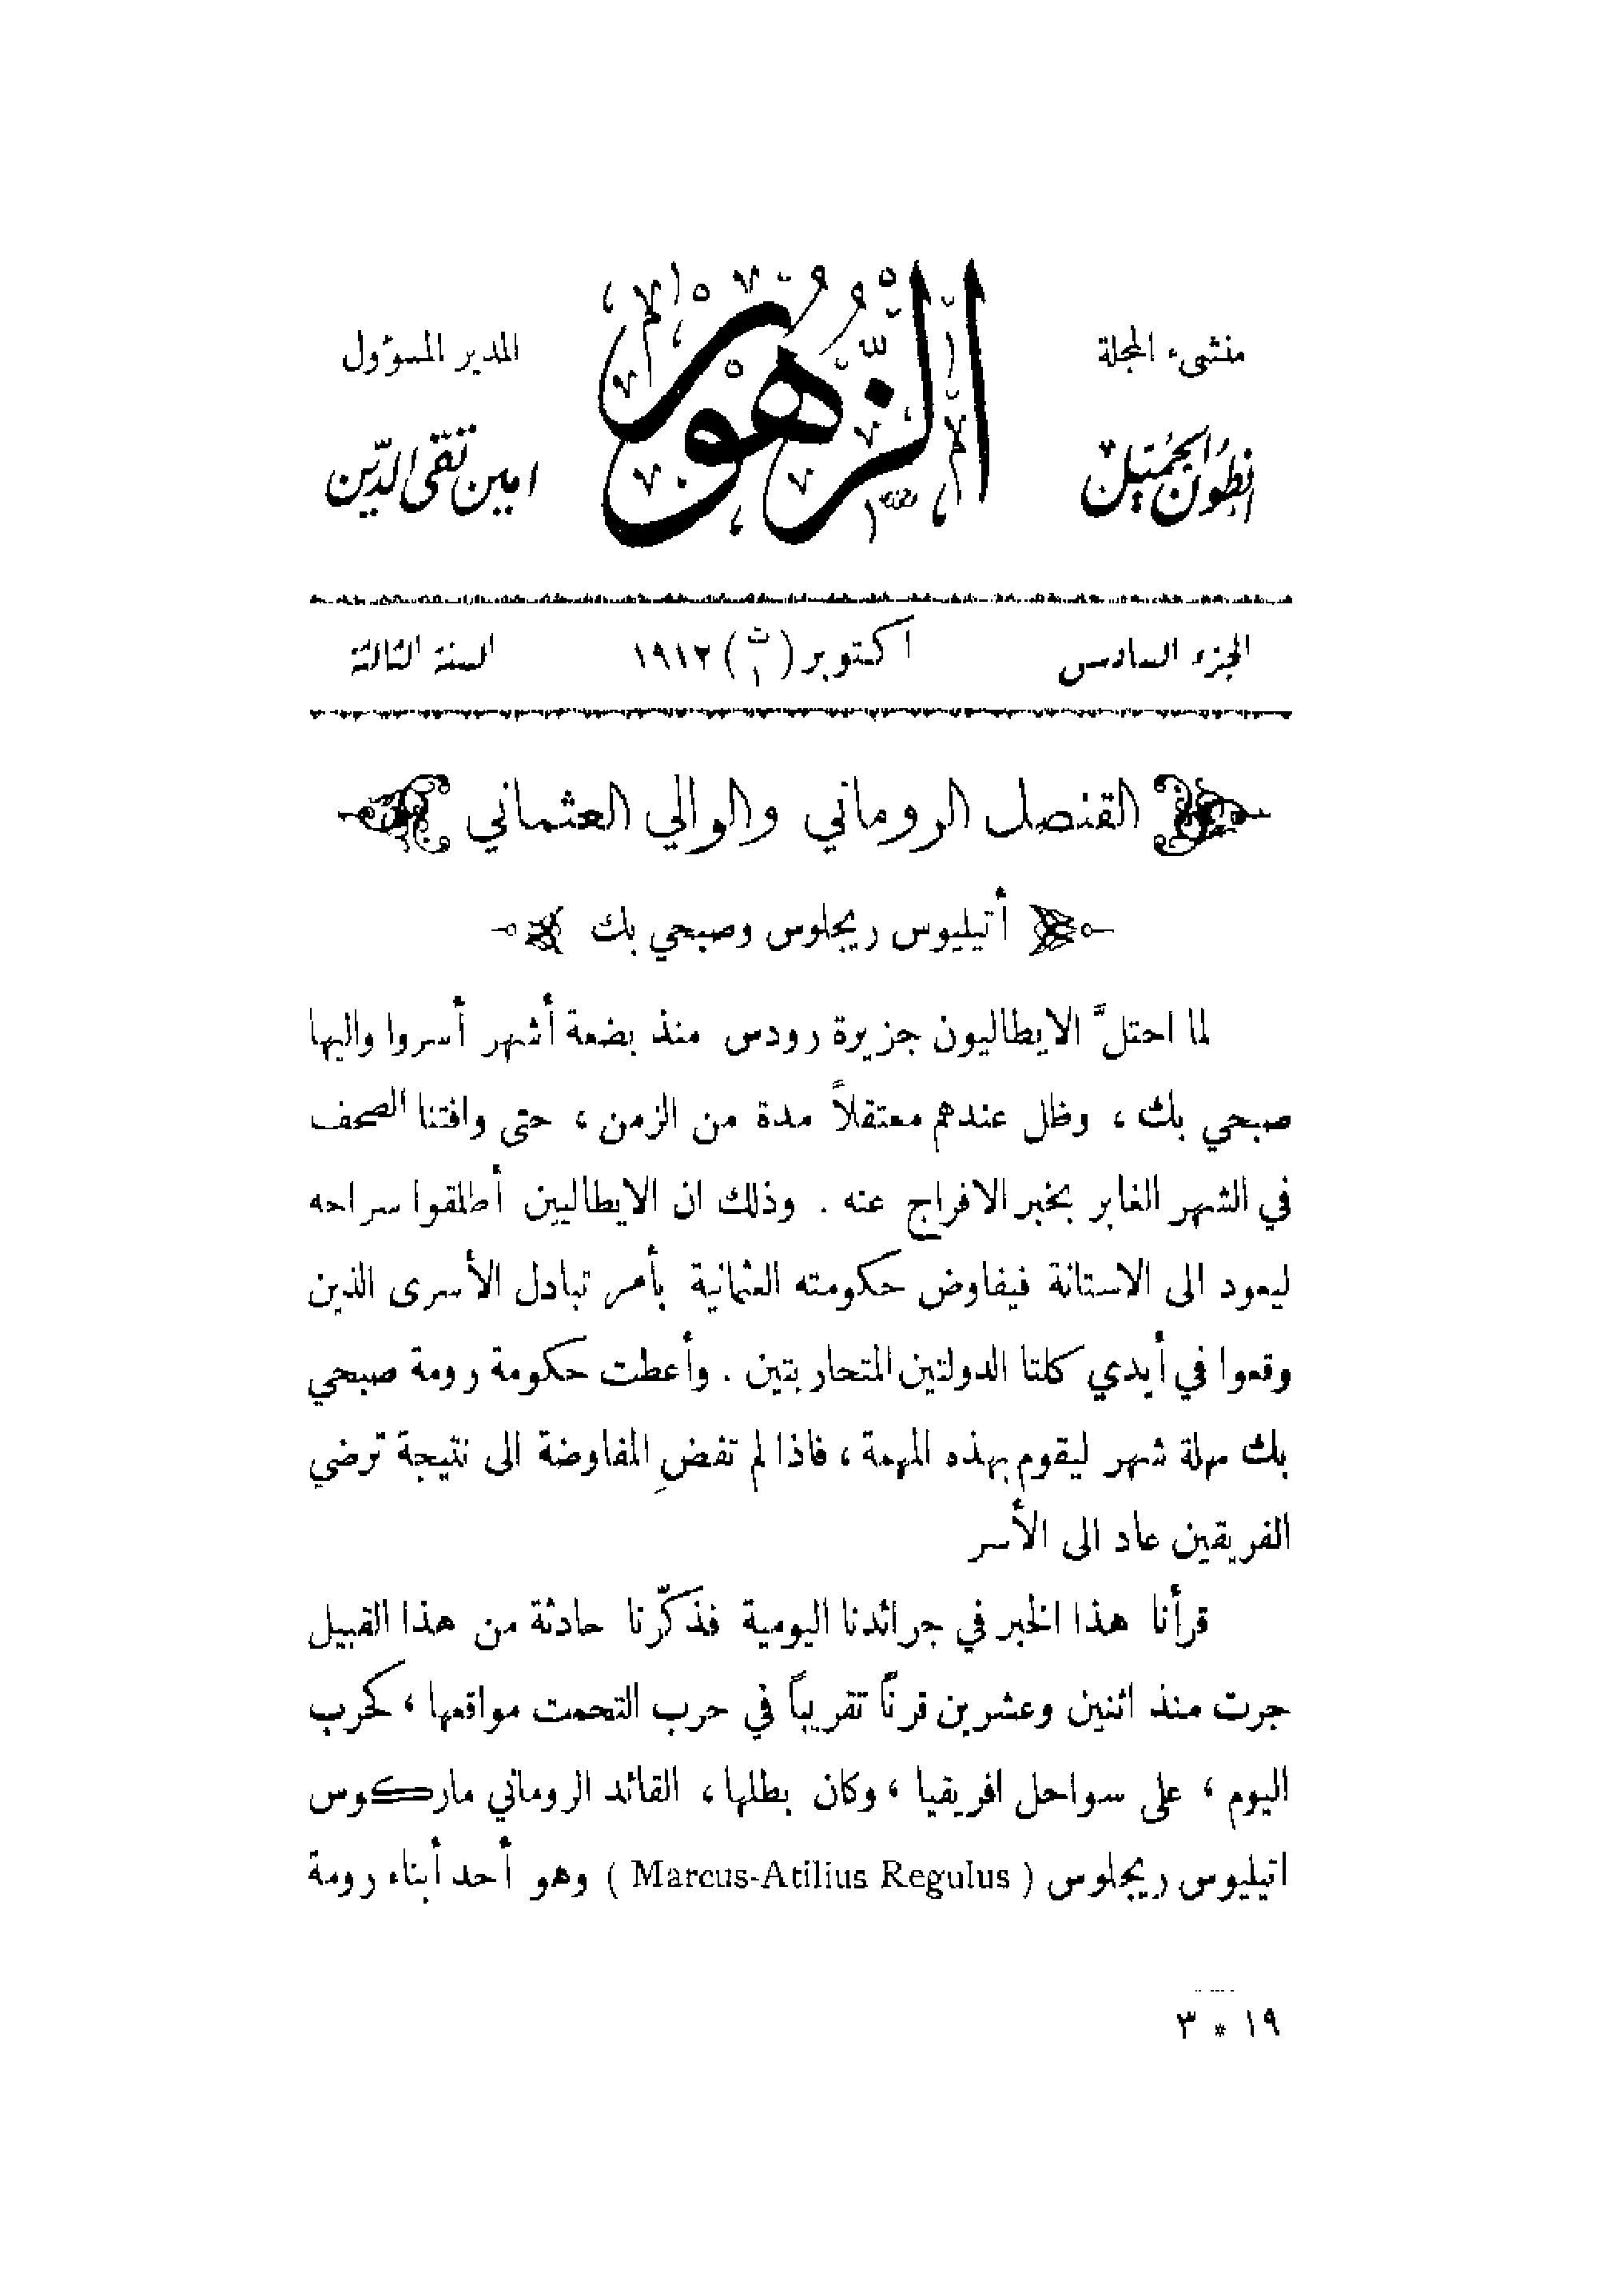 منشىء المجلة
انطون الجميل
الزهور
المدير المسؤول
امين تقي الدّين
الجزء السادس
اكتوبر ( ت ١ ) ١٩١٢
السنة الثالثة
القنصل الروماني والوالي العثماني
أتيليوس ريجلوس وصبحي بك
لما احتلَّ الايطاليون جزيرة رودس منذ بضعة أشهر أسروا واليها
صبحي بك ، وظل عندهم معتقلاً مدة من الزمن ، حتى وافتنا الصحف
في الشهر الغابر بخبر الافراج عنه . وذلك ان الايطاليين أطلقوا سراحه
ليعود الى الاستانة فيفاوض حكومته العثمانية بأمر تبادل الأسرى الذين
وقعوا في أيدي كلتا الدولتين المتحاربتين . وأعطت حكومة رومة صبحي
بك مهلة شهر ليقوم بهذه المهمة ، فاذا لم تفضِ المفاوضة الى نتيجة ترضي
الفريقين عاد الى الأسر
قرأنا هذا الخبر في جرائدنا اليومية فذكّرنا حادثة من هذا القبيل
جرت منذ اثنين وعشرين قرنًا تقريباً في حرب التحمت مواقعها ، كحرب
اليوم ، على سواحل افريقيا ، وكان بطلها ، القائد الروماني ماركوس
اتيليوس ريجلوس ( Marcus-Atilius Regulus ) وهو أحد أبناء رومة
١٩ * ٣